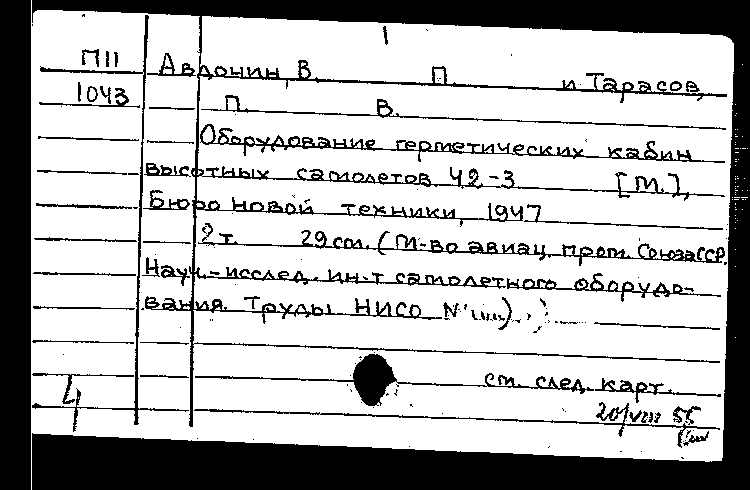 П11
1043
Авдонин, В. П. и Тарасов,
П. В.
Оборудование герметических кабин
высотных самолетов. Ч2-3 [М.],
Бюро новой техники, 1947
2 т. 29 см. (М-во авиац. пром. Союза ССР.
Науч.-исслед. ин-т самолетного оборудо-
вания. Труды НИСО №
см. след. карт.
20/VIII 55
4